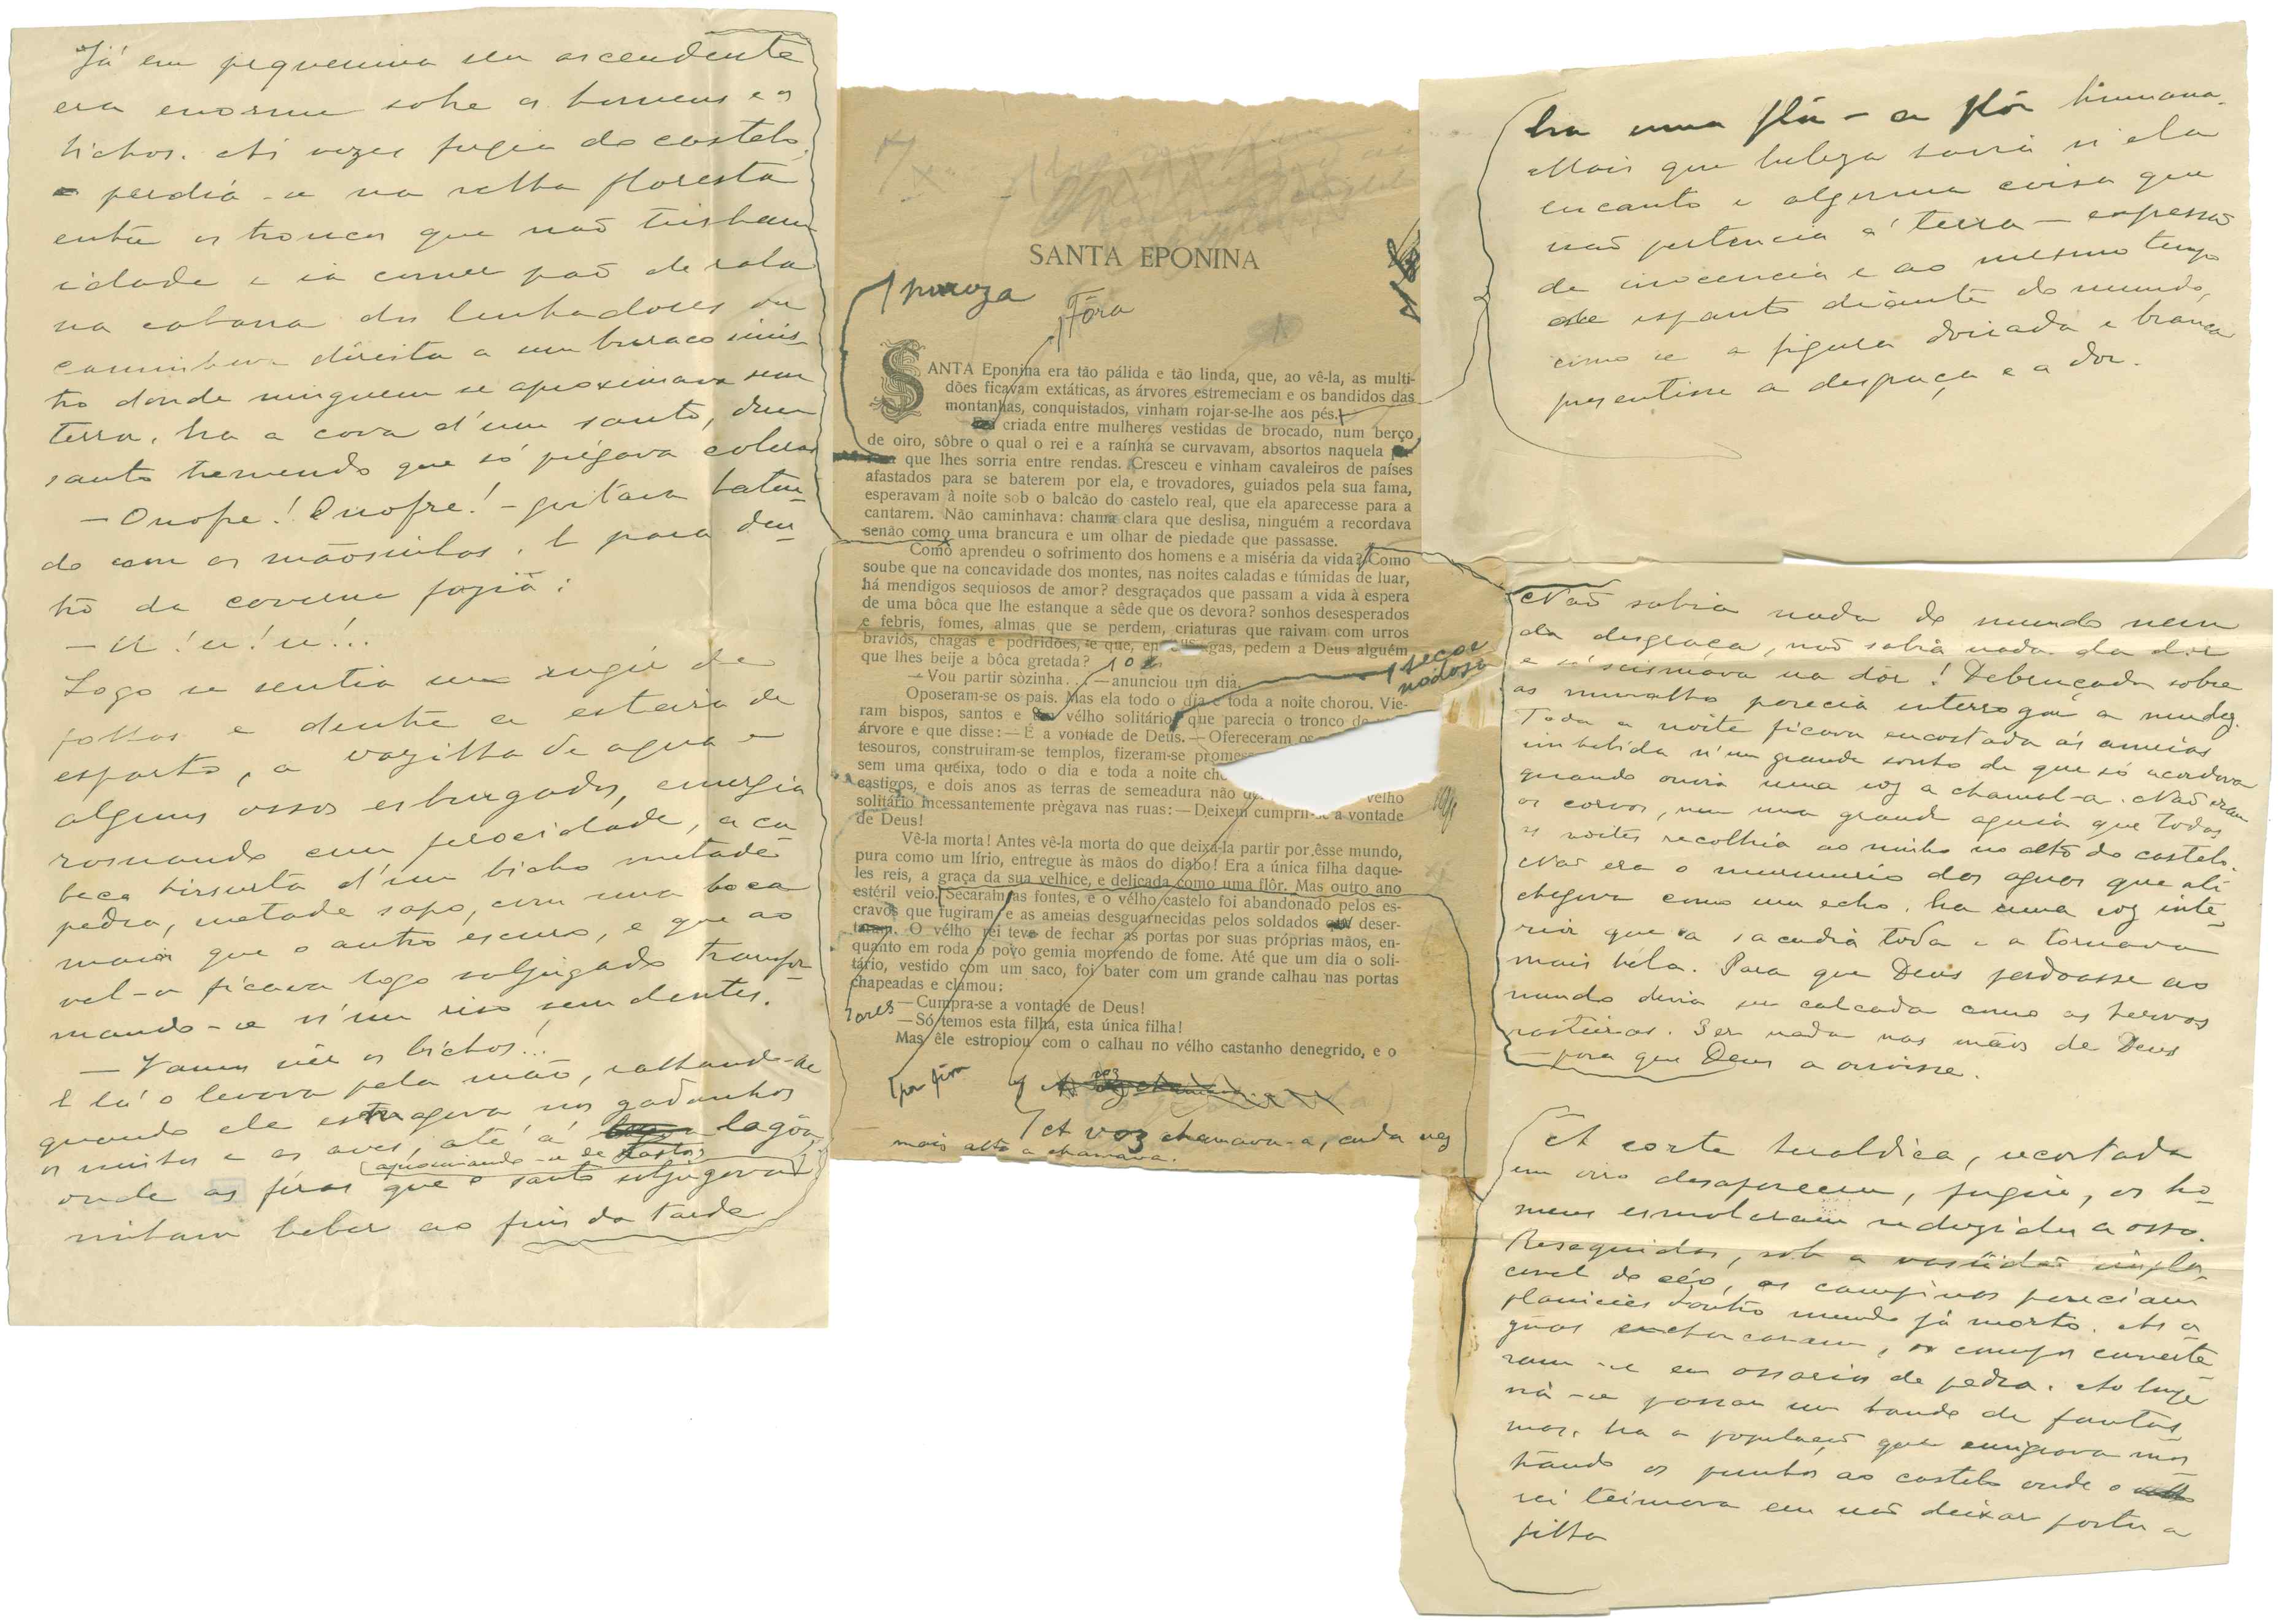 Já em pequenina seu ascendente
era enorme sobre os homens e os
bichos. Ás vezes fugia do castelo,
e perdia-se na velha floresta
entre os troncos que não tinham
idade e ia comer pão de rala
na cabana dos lenhadores ou
caminhava direita a um buraco sinis-
tro donde ninguem se aproximava sem
terror. Era a cova d'um santo, dum
santo tremendo que só prégava coleras
— Onofre! Onofre! — gritava baten-
do com as mãosinhas. E para den-
tro da caverna fazia:
— U! u! u!..
Logo se sentia um rugir de
folhas e dentre a esteira de
esparto, a vazilha de agua e
alguns ossos esburgados, emergia
rosnando com ferocidade, a ca
beça hirsuta d'um bicho metade
pedra, metade sapo, com uma boca
maior que o antro escuro, e que ao
vel-a ficava logo subjugado transfor
mando-se n'um riso sem dentes.
— Vamos vêr os bichos!..
E lá o levava pela mão, ralhando-lhe
quando ele estragava nos gadanhos
os ninhos e as aves, até á lagôa
aproximando-se de rastos
onde as féras que o santo subjugava
vinham beber ao fim da tarde
SANTA EPONINA
pureza
Fóra
SANTA Eponina era tão pálida e tão linda, que, ao vê-la, as multi-
dões ficavam extáticas, as árvores estremeciam e os bandidos das
montanhas, conquistados, vinham rojar-se-lhe aos pés.
criada entre mulheres vestidas de brocado, num berço
de oiro, sôbre o qual o rei e a raínha se curvavam, absortos naquela
que lhes sorria entre rendas. Cresceu e vinham cavaleiros de países
afastados para se baterem por ela, e trovadores, guiados pela sua fama,
esperavam à noite sob o balcão do castelo real, que ela aparecesse para a
cantarem. Não caminhava: chama clara que deslisa, ninguém a recordava
senão como uma brancura e um olhar de piedade que passasse.
Como aprendeu o sofrimento dos homens e a miséria da vida? Como
soube que na concavidade dos montes, nas noites caladas e túmidas de luar,
há mendigos sequiosos de amor? desgraçados que passam a vida à espera
de uma bôca que lhe estanque a sêde que os devora? sonhos desesperados
e febris, fomes, almas que se perdem, criaturas que raivam com urros
bravios, chagas e podridões, e que, en gas, pedem a Deus alguém
que lhes beije a bôca gretada?
secoe
nodoso
— Vou partir sòzinha... — anunciou um dia.
Oposeram-se os pais. Mas ela todo o dia e toda a noite chorou. Vie-
ram bispos, santos e vélho solitário que parecia o tronco de
árvore e que disse: — É a vontade de Deus. — Ofereceram
tesouros, construiram-se templos, fizeram-se
sem uma queixa, todo o dia e toda a noite
castigos, e dois anos as terras de semeadura não velho
solitário incessantemente prègava nas ruas: — Deixem cumprir-se a vontade
de Deus!
Vê-la morta! Antes vê-la morta do que deixá-la partir por êsse mundo,
pura como um lírio, entregue às mãos do diabo! Era a única filha daque-
les reis, a graça da sua velhice, e delicada como uma flôr. Mas outro ano
estéril veio. Secaram as fontes, e o vélho castelo foi abandonado pelos es-
cravos que fugiram e as ameias desguarnecidas pelos soldados deser-
O vélho rei teve de fechar as portas por suas próprias mãos, en-
quanto em roda o povo gemia morrendo de fome. Até que um dia o soli-
tário, vestido com um saco, foi bater com um grande calhau nas portas
chapeadas e clamou:
— Cumpra-se a vontade de Deus!
— Só temos esta filha, esta única filha!
Mas êle estropiou com o calhau no vélho castanho denegrido, e o
por fim
A voz chamava-a, cada vez
mais alto a chamava.
Era uma flôr — a flôr humana.
Mais que beleza havia n'ela
encanto e alguma coisa que
não pertencia á terra — expressão
de inocencia e ao mesmo tempo
de espanto diante do mundo,
como se a figura doirada e branca
presentisse a desgraça e a dor.
Não sabia nada do mundo nem
da desgraça, não sabia nada da dor
e só scismava na dôr! Debruçada sobre
as muralhas parecia interrogar a mudez.
Toda a noite ficava encostada ás ameias
embebida n'um grande sonho de que só acordava
quando ouvia uma voz a chamal-a. Não eram
os corvos, nem uma grande aguia que todas
as noites recolhia ao ninho no alto do castelo.
Não era o murmurio das aguas que ali
chegava como um echo. Era uma voz inte-
rior que a sacudia toda e a tornava
mais bela. Para que Deus perdoasse ao
mundo devia ser calcada como as hervas
rasteiras. Ser nada nas mãos de Deus
— para que Deus a ouvisse.
A corte heraldica, recortada
em oiro desapareceu, fugiu, os ho-
mens esmolaram reduzidos a osso.
Resequidas, sob a vastidão impla-
cavel do céo, as campinas pareciam
planicies doutro mundo já morto. As a
guas encharcaram, os campos converte
ram-se em ossarios de pedra. Ao longe
via-se passar um bando de fantas
mas. Era a população que emigrava mos
trando os punhos ao castelo onde o
rei teimava em não deixar partir a
filha